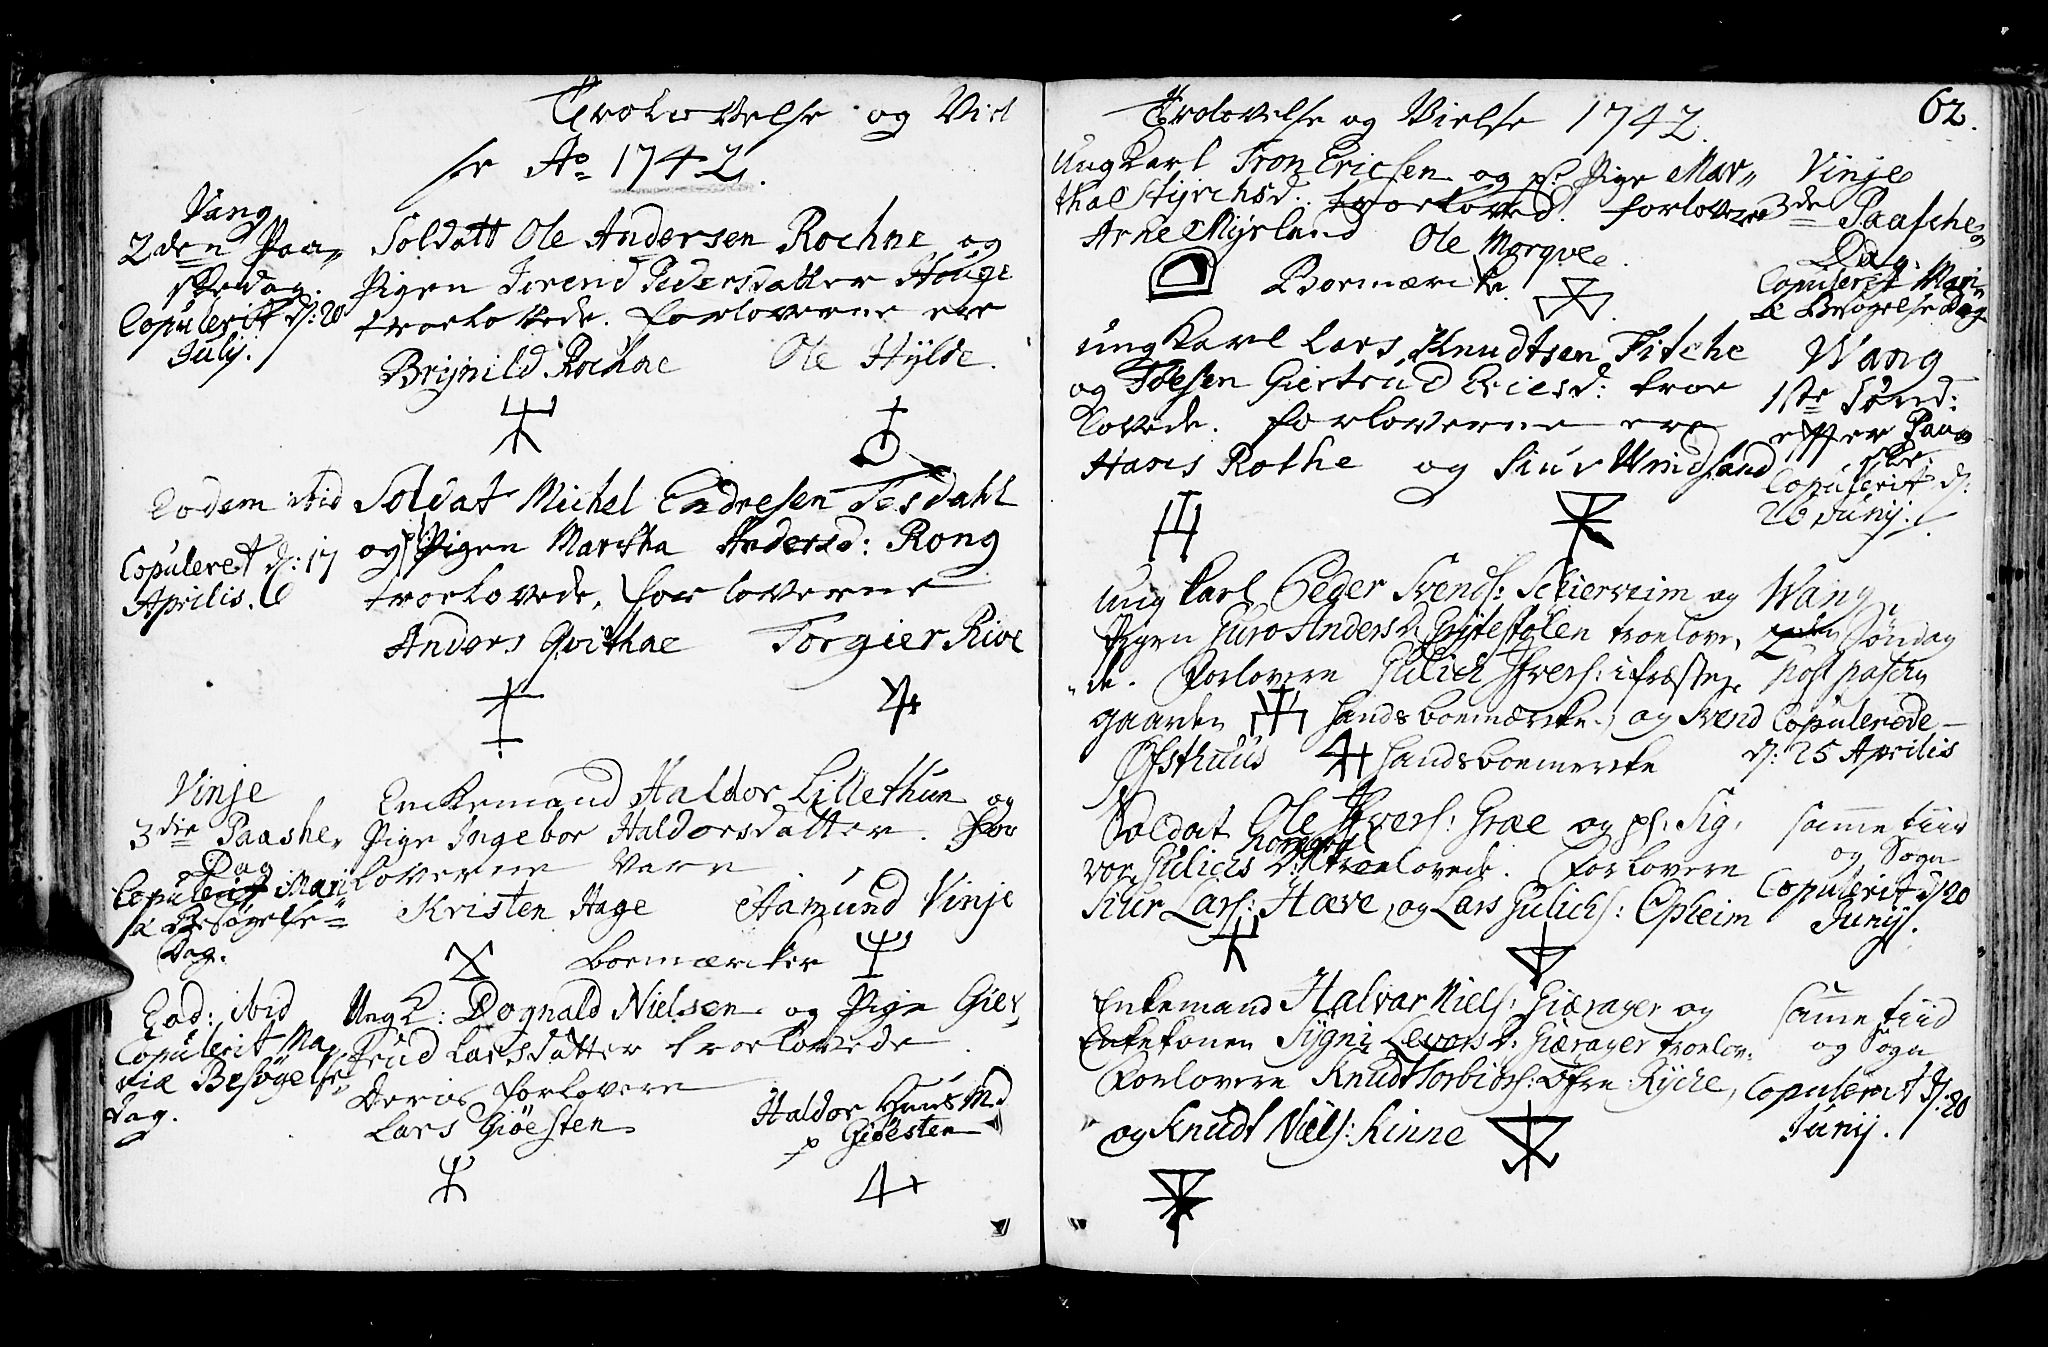 Troelovelse og Viel
se Ao 1742.
Vang
2den Paa„
skedag.
Copulerit d: 20
Julij.
Soldatt Ole Andersen Rochne og
Pigen Jorend Pedersdatter Houge
troelovede. forloverne ere
Brijnild Rochne Ole Hylde.
Eodem ibid
Copuleret d: 17
Aprilis.
Soldat Michel Endresen Tesdahl
og Pigen Martha Andersd: Rong
troelovede, forloverne
Anders Qvithne Torgier Rive
Vinje
3die Paashe„
Dag
Copulerit Mari
æ Besøgelse=
Dag.
Enckemand Haldor Lillethun og
Pige Ingebor Haldorsdatter. For
loverne vare
Kristen Hage Aamund Vinje
boemærcker
Eod: ibid
Copulerit Ma
riæ Besøgelse
dag.
Ungk: Dognald Nielsen og Pige Gier
trud Larsdatter troelovede.
Deris forlovere
Lars Giøesten
Haldor Huusmd
p Giøesten
Trolovelse og Vielse 1742. 62.
Ungkarl Tron Ericsen og ps. Pige Mar„
tha Styrchsd. troeloved. forlovere
Arne Myrland Ole Morqve.
Boemærcke
Vinje
3de Paasche„
Dag.
Copulerit Mari„
æ Besøgelse Dag
ung karl Lars Knudtsen Fitche
og Tøesen Giertrud Ericsd: troe
lovede. forloverne ere
Hans Rothe og Siur Windsand
Wang
1ste Sønd:
efter Paa„
ske
Copulerit d:
26 Junij.
Ung karl Peder Svends: Schierveim og
Pigen Guro Andersd. Gytestølen troelove„
„de. Forlovere Gulich Ivers: i Præste„
gaarden hands boemærcke, og Svend
Østhuus hands boemercke
Wang
2den Søndag
post pascha
Copulerede
d: 25 Aprilis
Soldat Ole Ivers: Græe og ps: Sig„
vor Gulichs D: troelovede. Forlovere
Siur Lars: Hæve, og Lars Gulichs: Opheim
samme tiid
og Sogn
Copulerit d 20
Junij.
Enkemand Halvar Niels: Giærager og
Enkekonen Sygni Levors D: Giærager troelov:
Forlovere Knudt Torbiørs: Øfre Ryche,
og Knudt Niels: Kinne
samme tiid
og Sogn
Copulerit d: 20
Junij.